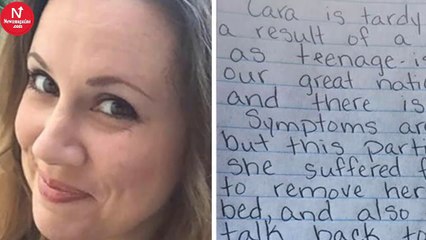 N
Newsmagazine
.com
Cara is tardy
a result of a
as teenage-is
our great natio
and there is
Symptoms are
but this parti
she suffered f
to remove her
bed, and also
talk back to